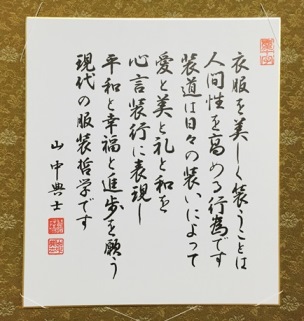 衣服を美しく装うことは
人間性を高める行為です
装道は日々の装いによって
愛と美と礼と和を
心言装行に表現し
平和と幸福と進歩を願う
現代の服装哲学です
山中典士